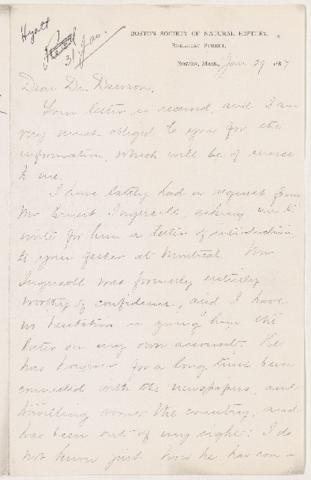 Hyatt
31 Jan.
BOSTON SOCIETY OF NATURAL HISTORY,
BERKELEY STREET,
BOSTON, MASS., Jan 29 1887
Dear Dr. Dawson,
Your letter is received, and I am
very much obliged to you for the
information, which will be of service
to me.
I have lately had a request from
Mr Ernest Ingersoll, asking me to
write for him a letter of introduction
to your father at Montreal. Mr
Ingersoll was formerly entirely
worthy of confidence, and I have
no hesitation in giving him the
letter on my own account. He
has however for a long time been
connected with the newspapers, and
travelling over the country, and
has been out of my sight: I do
not know just how he has con-